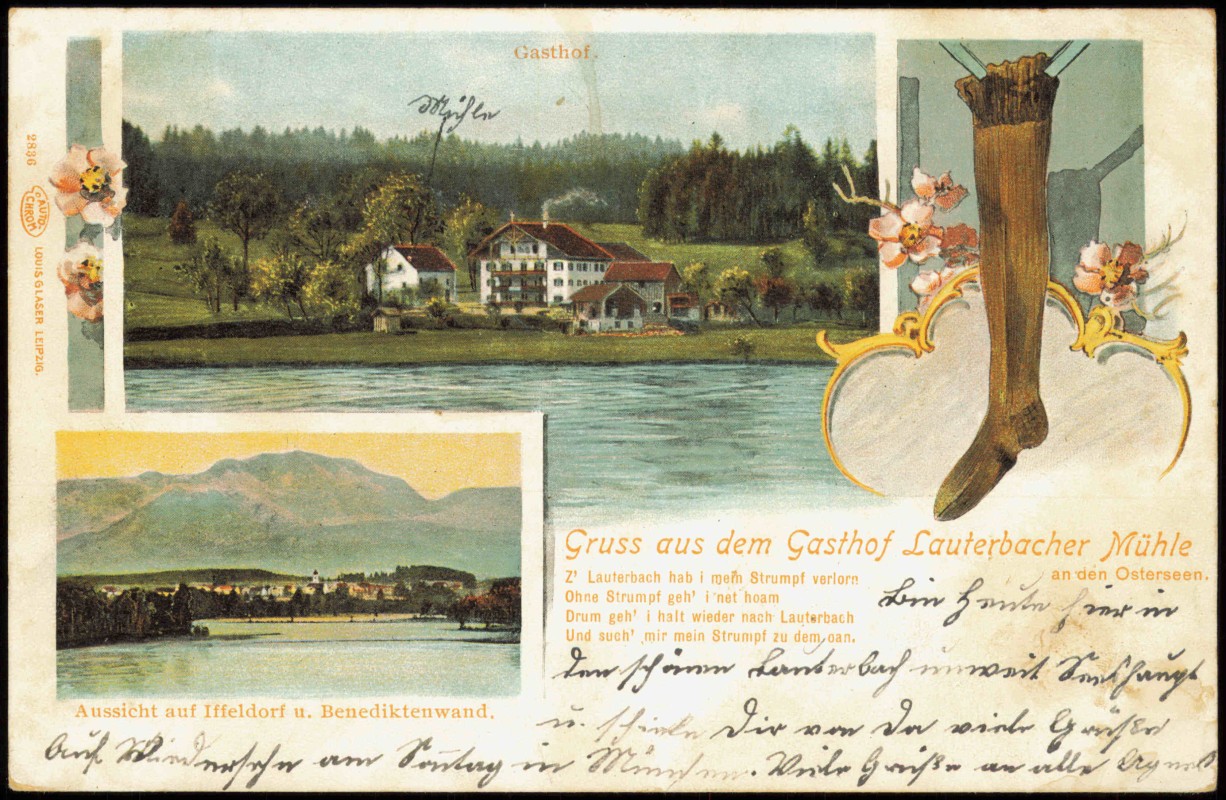 Gasthof.
Mühle
2836
AUTO-
CHROM
LOUIS GLASER LEIPZIG.
Gruss aus dem Gasthof Lauterbacher Mühle
an den Osterseen.
Z' Lauterbach hab i mein Strumpf verlorn
Ohne Strumpf geh' i net hoam
Drum geh' i halt wieder nach Lauterbach
Und such' mir mein Strumpf zu dem oan.
Bin heute hier in
den schönen Lauterbach unweit Seeshaupt
u. schicke Dir von da viele Grüße
Aussicht auf Iffeldorf u. Benediktenwand.
Auf Wiedersehn am Sonntag in München. Viele Grüße an alle Agnes